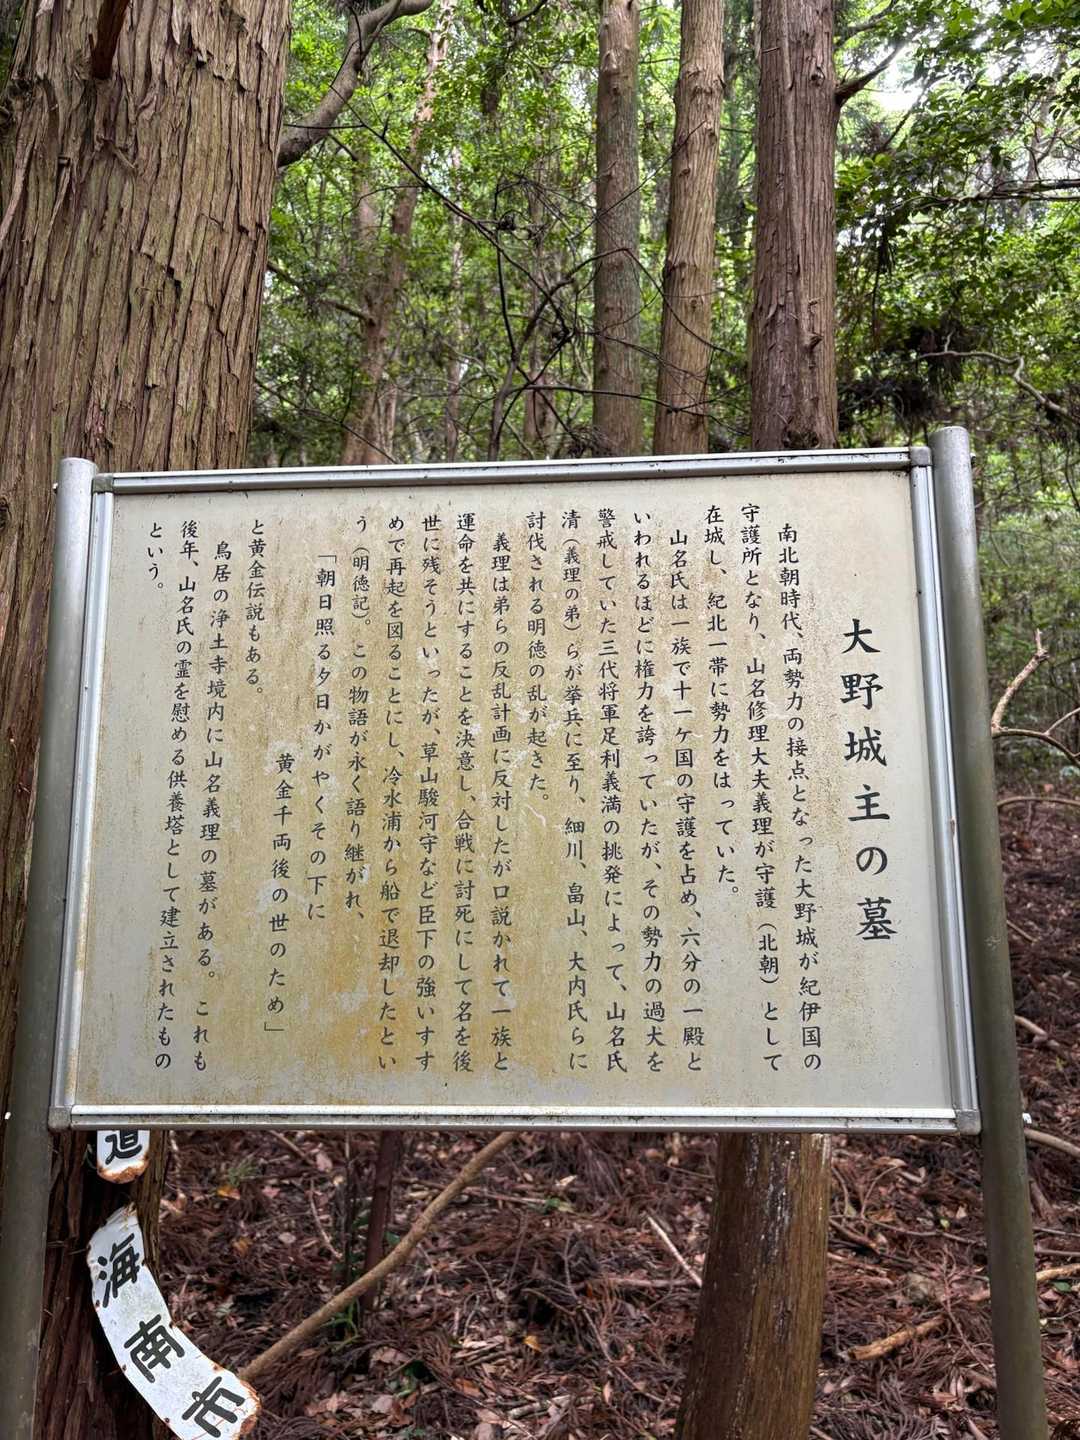 大野城主の墓
南北朝時代、両勢力の接点となった大野城が紀伊国の
守護所となり、山名修理大夫義理が守護（北朝）として
在城し、紀北一帯に勢力をはっていた。
山名氏は一族で十一ヶ国の守護を占め、六分の一殿と
いわれるほどに権力を誇っていたが、その勢力の過大を
警戒していた三代将軍足利義満の挑発によって、山名氏
清（義理の弟）らが挙兵に至り、細川、畠山、大内氏らに
討伐される明徳の乱が起きた。
義理は弟らの反乱計画に反対したが口説かれて一族と
運命を共にすることを決意し、合戦に討死にして名を後
世に残そうといったが、草山駿河守など臣下の強いすす
めで再起を図ることにし、冷水浦から船で退却したとい
う（明徳記）。この物語が永く語り継がれ、
「朝日照る夕日かがやくその下に
黄金千両後の世のため」
と黄金伝説もある。
鳥居の浄土寺境内に山名義理の墓がある。これも
後年、山名氏の霊を慰める供養塔として建立されたもの
という。
道
海南市